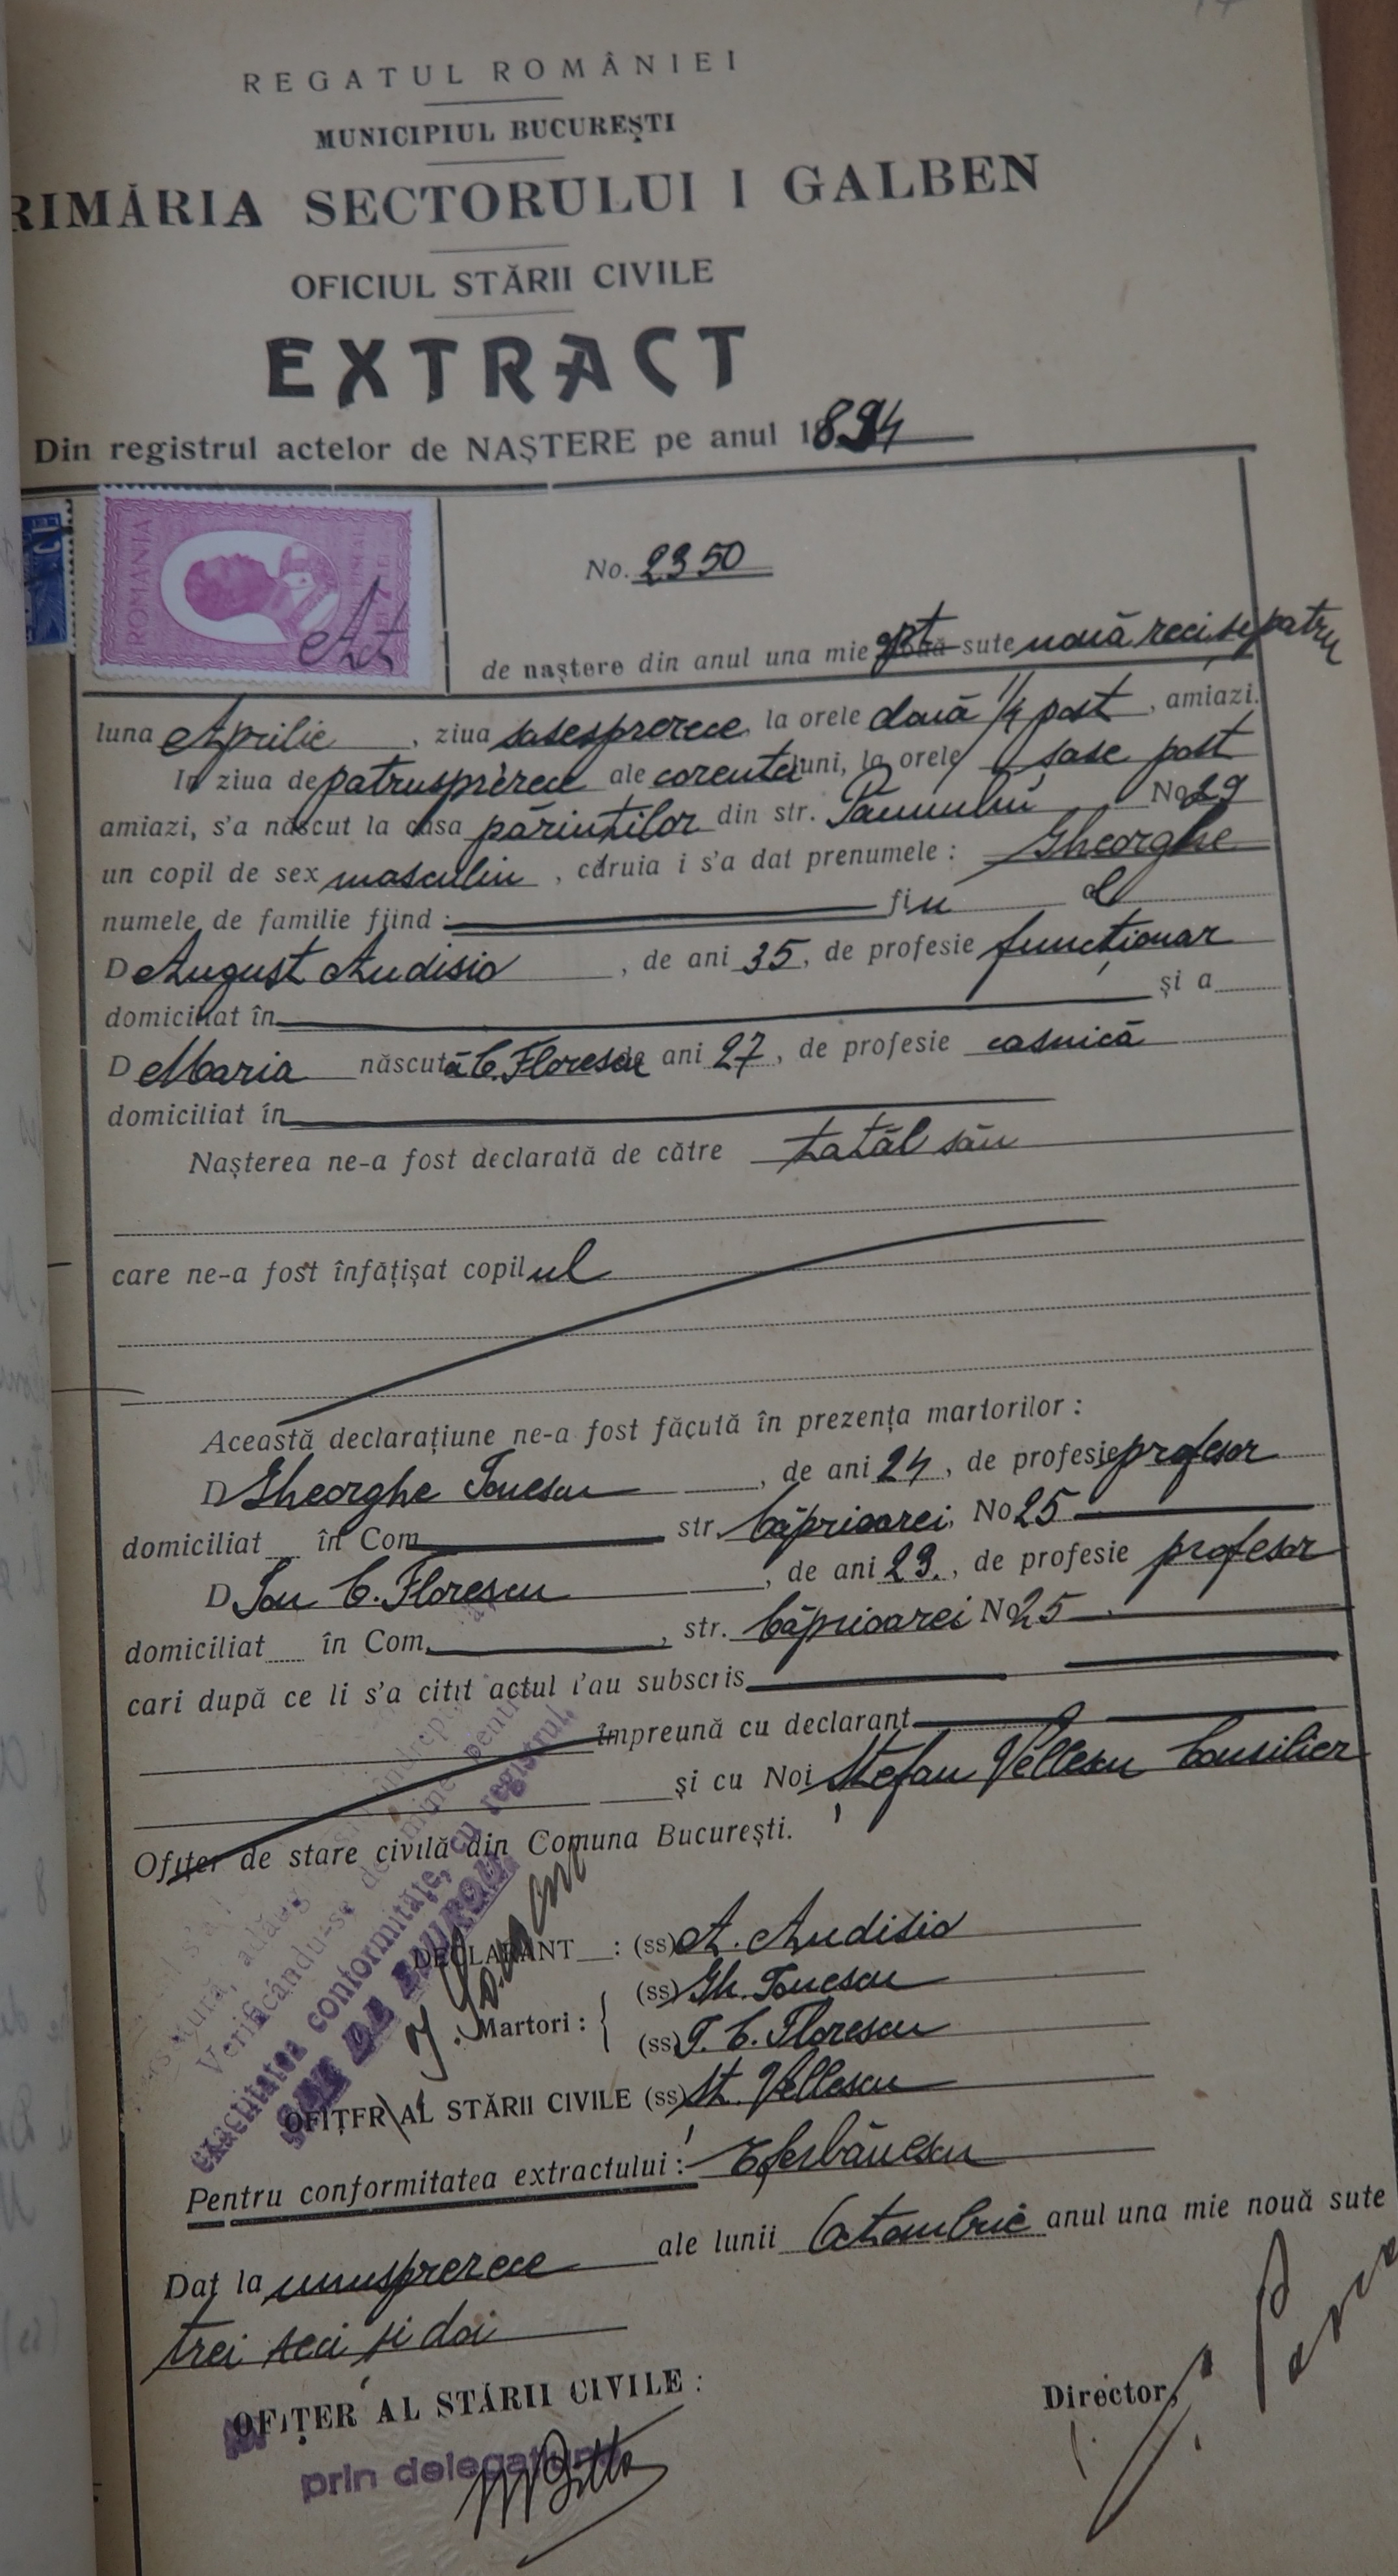 REGATUL ROMÂNIEI
MUNICIPIUL BUCUREȘTI
RIMĂRIA SECTORULUI I GALBEN
OFICIUL STĂRII CIVILE
EXTRACT
Din registrul actelor de NAȘTERE pe anul 1894
ROMANIA
No. 2350
de naștere din anul una mie opt sute nouă zeci și patru
luna Aprilie, ziua șasesprezece, la orele două 1/4 post, amiazi.
In ziua de patrusprezece ale corentei luni, la orele șase post
amiazi, s'a născut la casa părinților din str. No 29
un copil de sex masculin, căruia i s'a dat prenumele: Gheorghe
numele de familie fiind: fiu al
D August Audisio, de ani 35, de profesie funcționar
domiciliat în și a
D Maria născută C. Florescu de ani 27, de profesie casnică
domiciliat în
Nașterea ne-a fost declarată de către tatăl său
care ne-a fost înfățișat copilul
Această declarațiune ne-a fost făcută în prezența martorilor:
D Gheorghe Ionescu, de ani 24, de profesie profesor
domiciliat în Com. str. Căprioarei, No 25
D Ion C. Florescu, de ani 23., de profesie profesor
domiciliat în Com., str. Căprioarei No 25
cari după ce li s'a citit actul l'au subscris
împreună cu declarant
și cu Noi Ștefan Vellescu Consilier
Ofițer de stare civilă din Comuna București.
Verificându-se de mine pentru
exactitatea conformităței, cu registrul.
DECLARANT: (ss) A. Audisio
Martori: (ss) Gh. Ionescu
(ss) I. C. Florescu
OFIȚER AL STĂRII CIVILE (ss) Șt. Vellescu
Pentru conformitatea extractului: Șerbănescu
Dat la unusprezece ale lunii Octombrie anul una mie nouă sute
trei zeci și doi
OFIȚER AL STĂRII CIVILE:
Director,
prin delegațiune